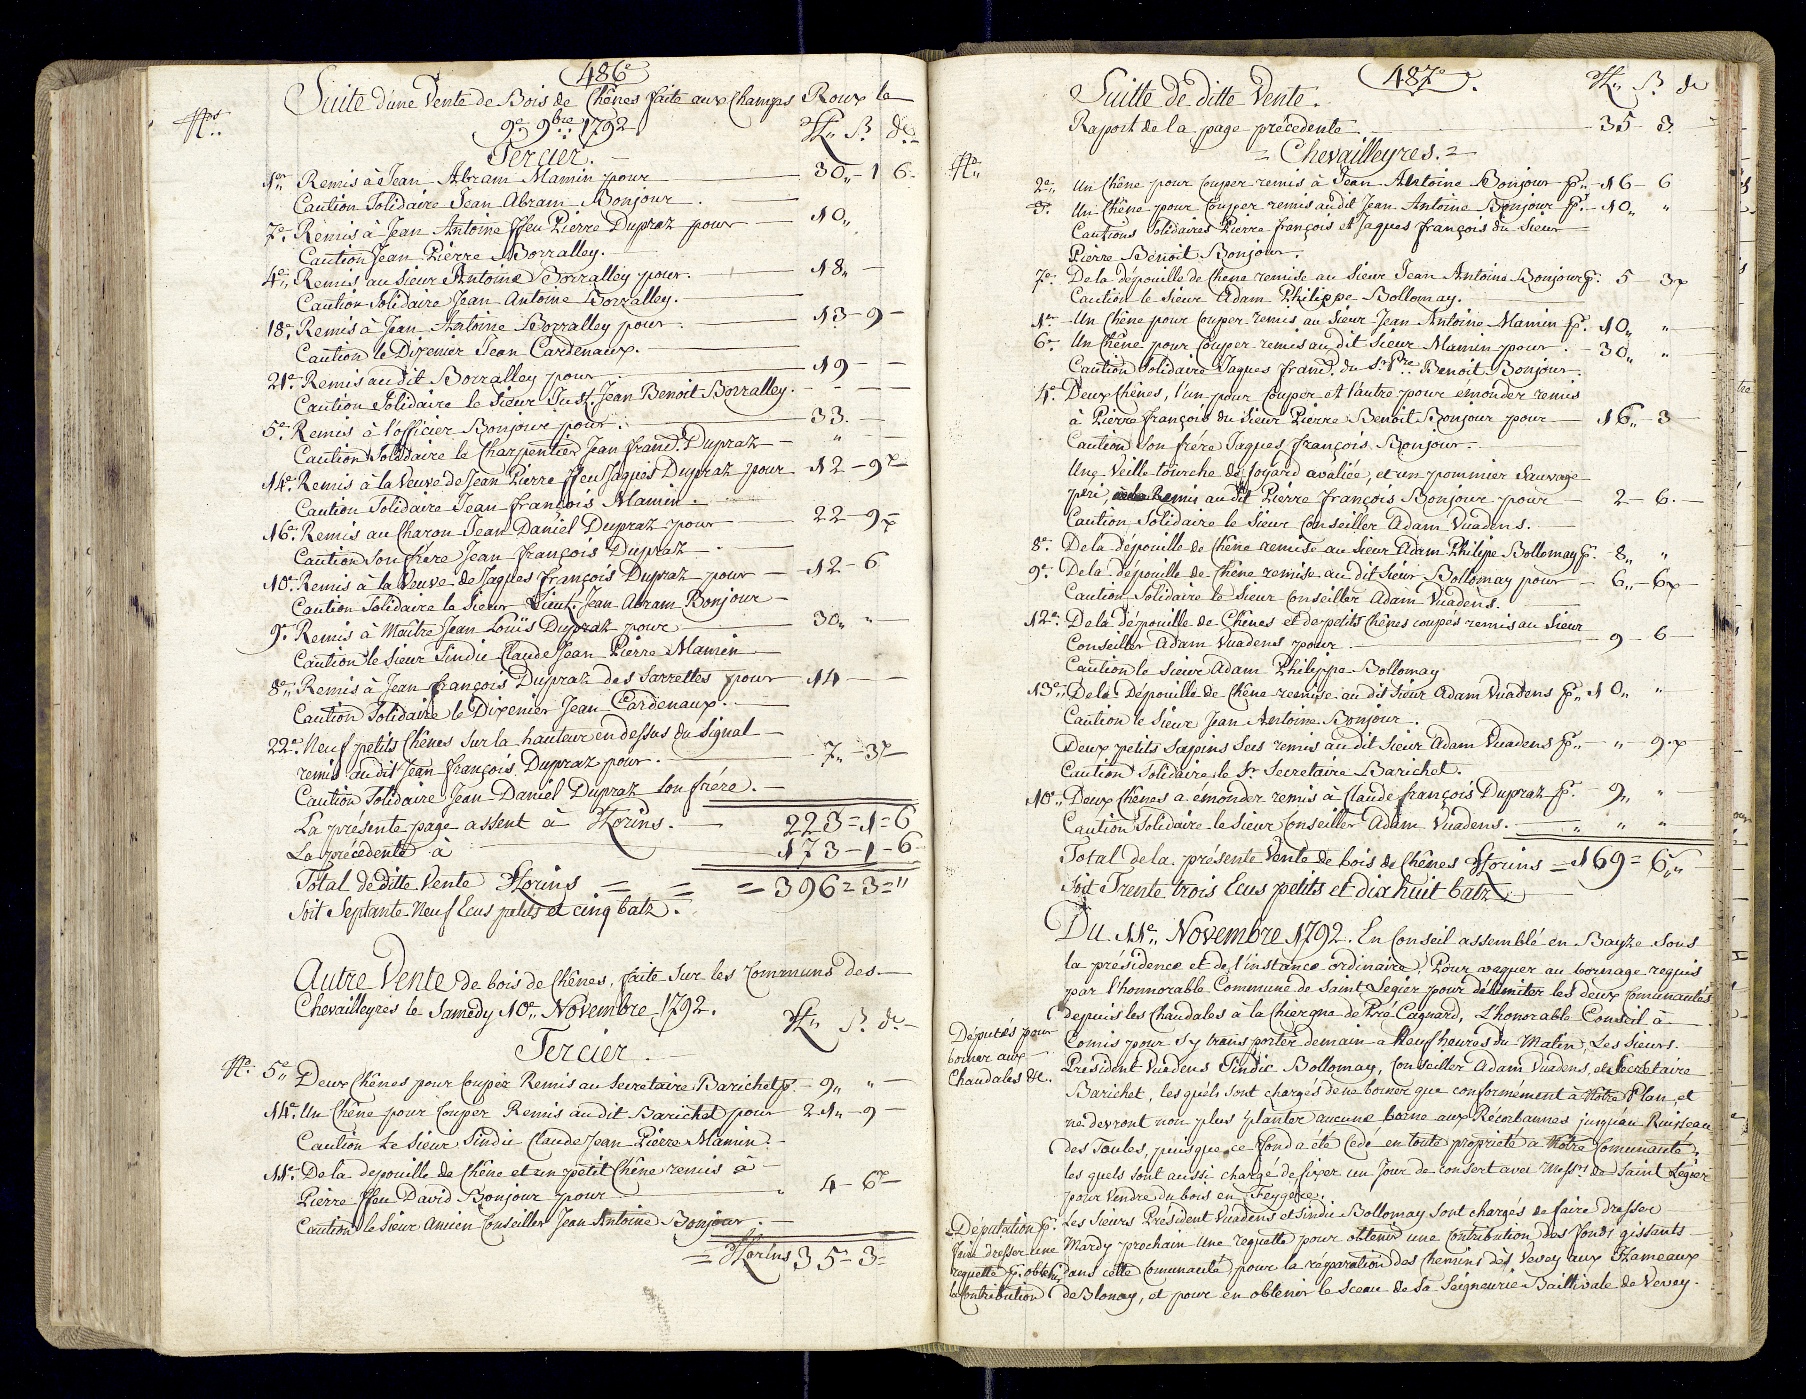 486e
Suite d'une Vente de Bois de Chênes faite aux Champs Roux le
9e. 9bre. 1792
Tercier.
1er. Remis à Jean Abram Mamin pour 30 - 1 6
Caution Solidaire Jean Abram Bonjour.
7e. Remis à Jean Antoine ffeu Pierre Dupraz pour 10 "
Caution Jean Pierre Borralley.
4e. Remis au Sieur Antoine Borralley pour 18 -
Caution Solidaire Jean Antoine Borralley.
18e. Remis à Jean Antoine Borralley pour 13 - 9 -
Caution le Dixenier Jean Cardenaux.
21e. Remis audit Borralley pour 19 - -
Caution Solidaire le Sieur Just. Jean Benoit Borralley.
5e. Remis à l'officier Bonjour pour 33 -
Caution Solidaire le Charpentier Jean franç. Dupraz
14e. Remis à la Veuve de Jean Pierre ffeu Jaques Dupraz pour 12 - 9
Caution Solidaire Jean françois Mamin.
16e. Remis au Charon Jean Daniel Dupraz pour 22 - 9
Caution Son frère Jean françois Dupraz
10e. Remis à la Veuve de Jaques françois Dupraz pour 12 - 6
Caution Solidaire le Sieur Lieut. Jean Abram Bonjour
9e. Remis à Maître Jean Louïs Dupraz pour 30 "
Caution le Sieur Sindic Claude Jean Pierre Mamin
8e. Remis à Jean françois Dupraz des Sarrettes pour 14 -
Caution Solidaire le Dixenier Jean Cardenaux.
22e. Neuf petits Chênes Sur la hauteur en dessus du Signal
remis audit Jean françois Dupraz pour. 7 - 3
Caution Solidaire Jean Daniel Dupraz Son frére.
La présente page assent à florins. 223 = 1 = 6
La précédente à 173 - 1 - 6
Total de ditte Vente florins = 396 = 3 = "
Soit Septante Neuf Ecus petits et cinq batz.
Autre Vente de bois de Chênes, faite Sur les Communs des
Chevailleyres le Samedy 10e. Novembre 1792.
Tercier.
5e. Deux Chênes pour Couper Remis au Secretaire Barichet p. 9 "
14e. Un Chêne pour Couper Remis audit Barichet pour 21 - 9
Caution Le Sieur Sindic Claude Jean Pierre Mamin.
11e. De la depouille de Chêne et un petit Chêne remis à
Pierre ffeu David Bonjour pour 4 - 6
Caution le Sieur Ancien Conseiller Jean Antoine Bonjour
= florins 35 - 3
487e.
Suitte de ditte Vente.
Raport de la page précedente 35 - 3.
= Chevailleyres. =
2e. Un Chêne pour Couper remis à Jean Antoine Bonjour p. 16 - 6
3e. Un Chêne pour Couper remis audit Jean Antoine Bonjour p. 10 "
Cautions Solidaires Pierre françois et Jaques françois du Sieur
Pierre Benoit Bonjour.
7e. De la dépouille de Chêne remise au Sieur Jean Antoine Bonjour p. 5 - 3
Caution le Sieur Adam Philippe Bollomay.
1er. Un Chêne pour Couper remis au Sieur Jean Antoine Mamin p. 10 "
6e. Un Chêne pour Couper remis audit Sieur Mamin pour 30 "
Caution Solidaire Jaques franç. du Sr. Pre. Benoit Bonjour
4e. Deux Chênes, l'un pour Couper et l'autre pour émonder remis
à Pierre françois du Sieur Pierre Benoit Bonjour pour 16 - 3
Caution Son frére Jaques françois Bonjour
Une Veille tourche de foyard avaliée, et un pommier Sauvage
peri, Remis audit Pierre françois Bonjour pour 2 - 6.
Caution Solidaire le Sieur Conseiller Adam Vuadens.
8e. De la dépouille de Chêne remise au Sieur Adam Philipe Bollomay p. 8 "
9e. De la dépouille de Chêne remise au dit Sieur Bollomay pour 6 - 6
Caution Solidaire le Sieur Conseiller Adam Vuadens.
12e. De la dépouille de Chênes et de petits Chênes coupés remis au Sieur
Conseiller Adam Vuadens pour 9 - 6
Caution le Sieur Adam Philippe Bollomay
13e. De la Dépouille de Chêne remise au dit Sieur Adam Vuadens p. 10 "
Caution le Sieur Jean Antoine Bonjour.
Deux petits Sapins Secs remis audit Sieur Adam Vuadens p. " - 9
Caution Solidaire le Sr. Secretaire Barichet.
10e. Deux Chênes a émonder remis à Claude françois Dupraz p. 9 "
Caution Solidaire le Sieur Conseiller Adam Vuadens. " " "
Total de la présente Vente de bois de Chênes florins = 169 = 6
Soit Trente trois Ecus petits et dix huit batz.
Du 11e. Novembre 1792. En Conseil assemblé en Bayze Sous
la présidence et de l'instance ordinaire, Pour vaquer au bornage requis
par l'honnorable Commune de Saint Legier pour délimiter les deux Comunautés
depuis les Chaudales à la Chiergna de Pré Cagnard, L'honorable Conseil à
Comis pour s'y transporter demain a Neuf heures du Matin, Les Sieurs
Président Vuadens Sindic Bollomay, Conseiller Adam Vuadens, et Secretaire
Barichet, lesquels Sont chargés de ne borner que conformément à Notre Plan, et
ne devront non plus planter aucune borne aux Recorbannes jusqu'au Ruisseau
des Toules, puisque ce fond a été Cedé en toute propriété à Notre Comunauté,
les quels Sont aussi chargé de fixer un Jour de consert avec Messrs. de Saint Legier
pour Vendre du bois en Feygere.
Les Sieurs Président Vuadens et Sindic Bollomay Sont chargés de faire dresser
Mardy prochain Une requette pour obtenir une Contribution des fonds gissants
dans cette Comunauté, pour la réparation des Chemins dès Vevey aux Hameaux
de Blonay, et pour en obtenir le Sceau de Sa Seigneurie Baillivale de Vevey.
Députés pour
borner aux
Chaudales &c.
Députation p.
faire dresser une
requette p. obtenir
la Contribution